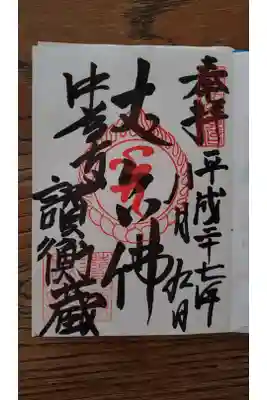 奉拝
平成二十七年
八月九日
丈六佛
中尊寺
讃衡蔵